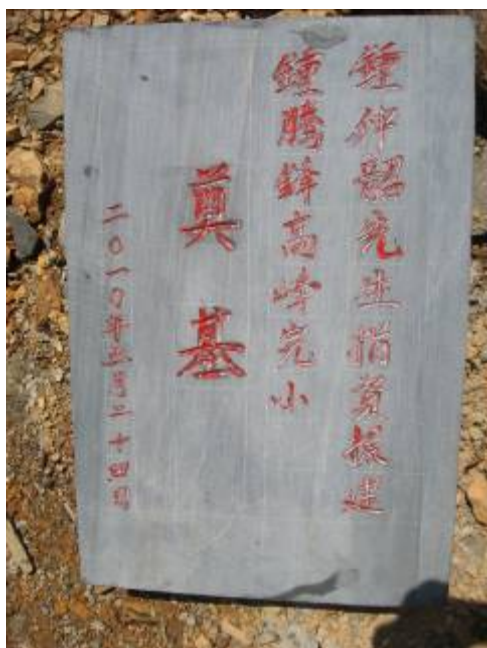 鍾仲韶先生捐資援建
鍾騰鋒高峰完小
奠基
二〇一〇年三月二十四日